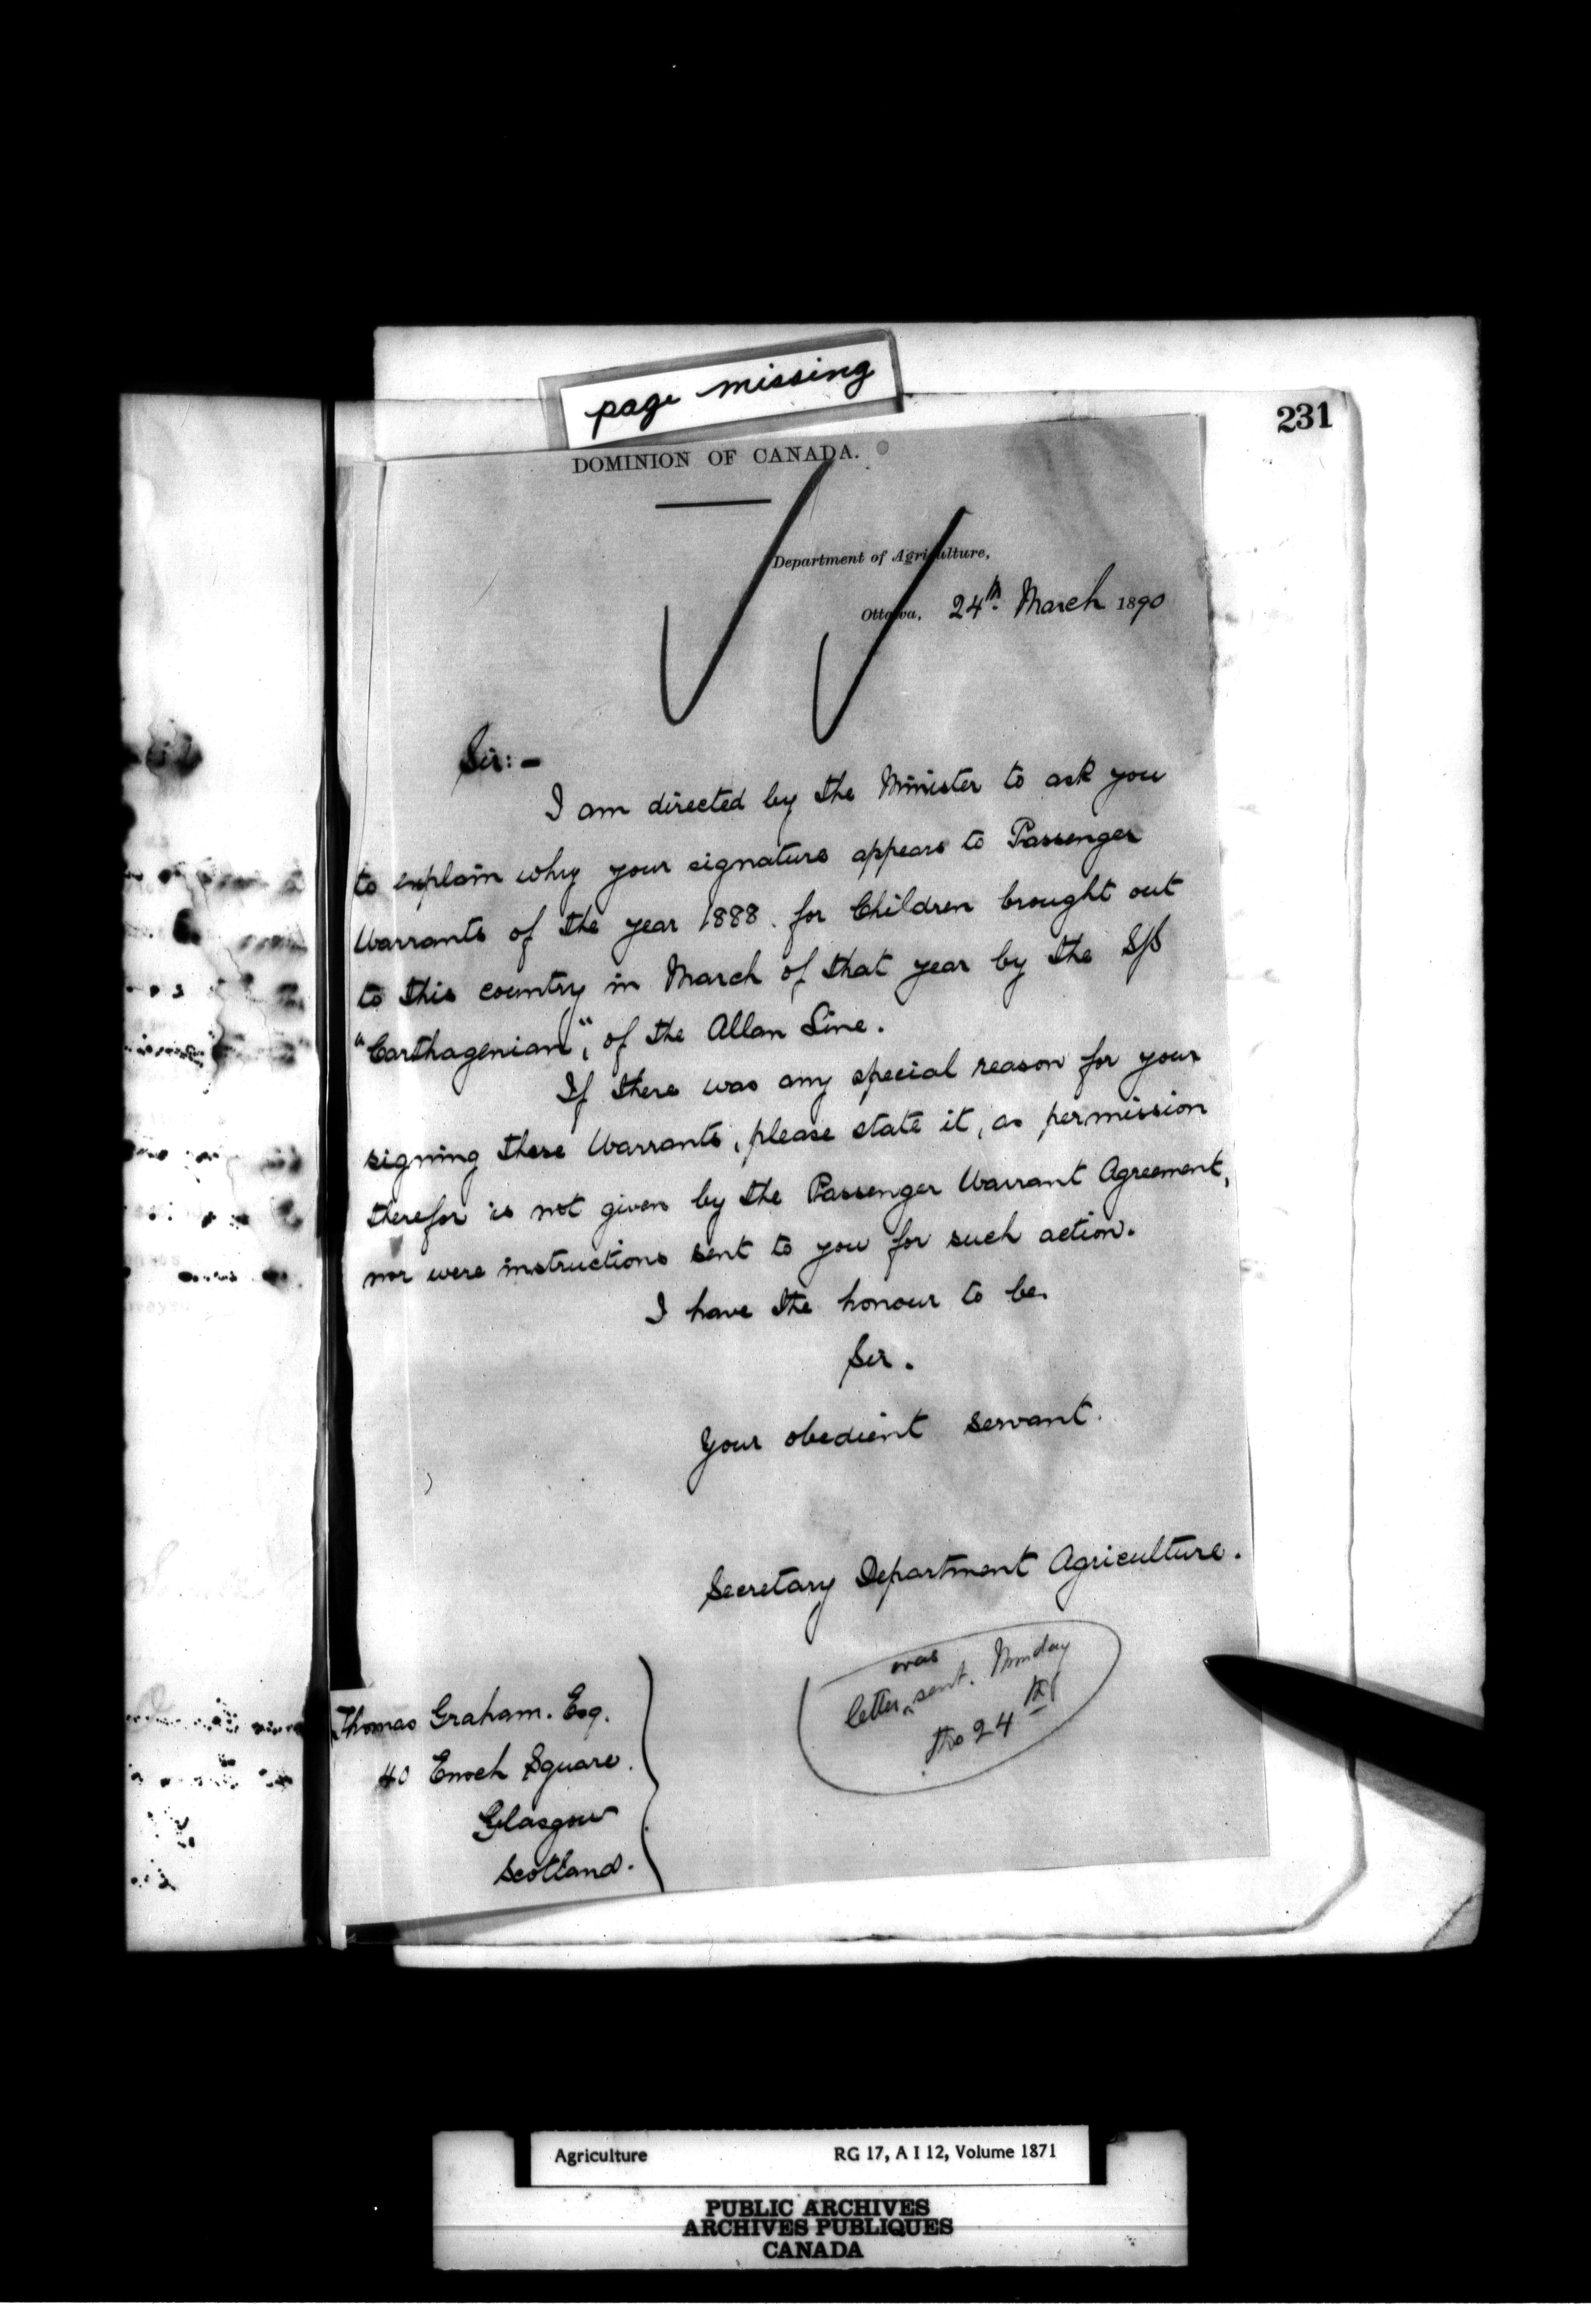 page missing
231
DOMINION OF CANADA.
Department of Agriculture,
Ottawa, 24th March 1890
Sir:-
I am directed by the Minister to ask you
to explain why your signature appears to Passenger
Warrants of the year 1888. for Children brought out
to this country in March of that year by the S/S
"Carthagenian", of the Allan Line.
If there was any special reason for your
signing these Warrants, please state it, as permission
therefor is not given by the Passenger Warrant Agreement,
nor were instructions sent to you for such action.
I have the honour to be.
Sir.
Your obedient servant.
Secretary Department Agriculture.
was
letter ^ sent. Monday
the 24th
Thomas Graham. Esq.
40 Enoch Square.
Glasgow
Scotland.
Agriculture RG 17, A I 12, Volume 1871
PUBLIC ARCHIVES
ARCHIVES PUBLIQUES
CANADA